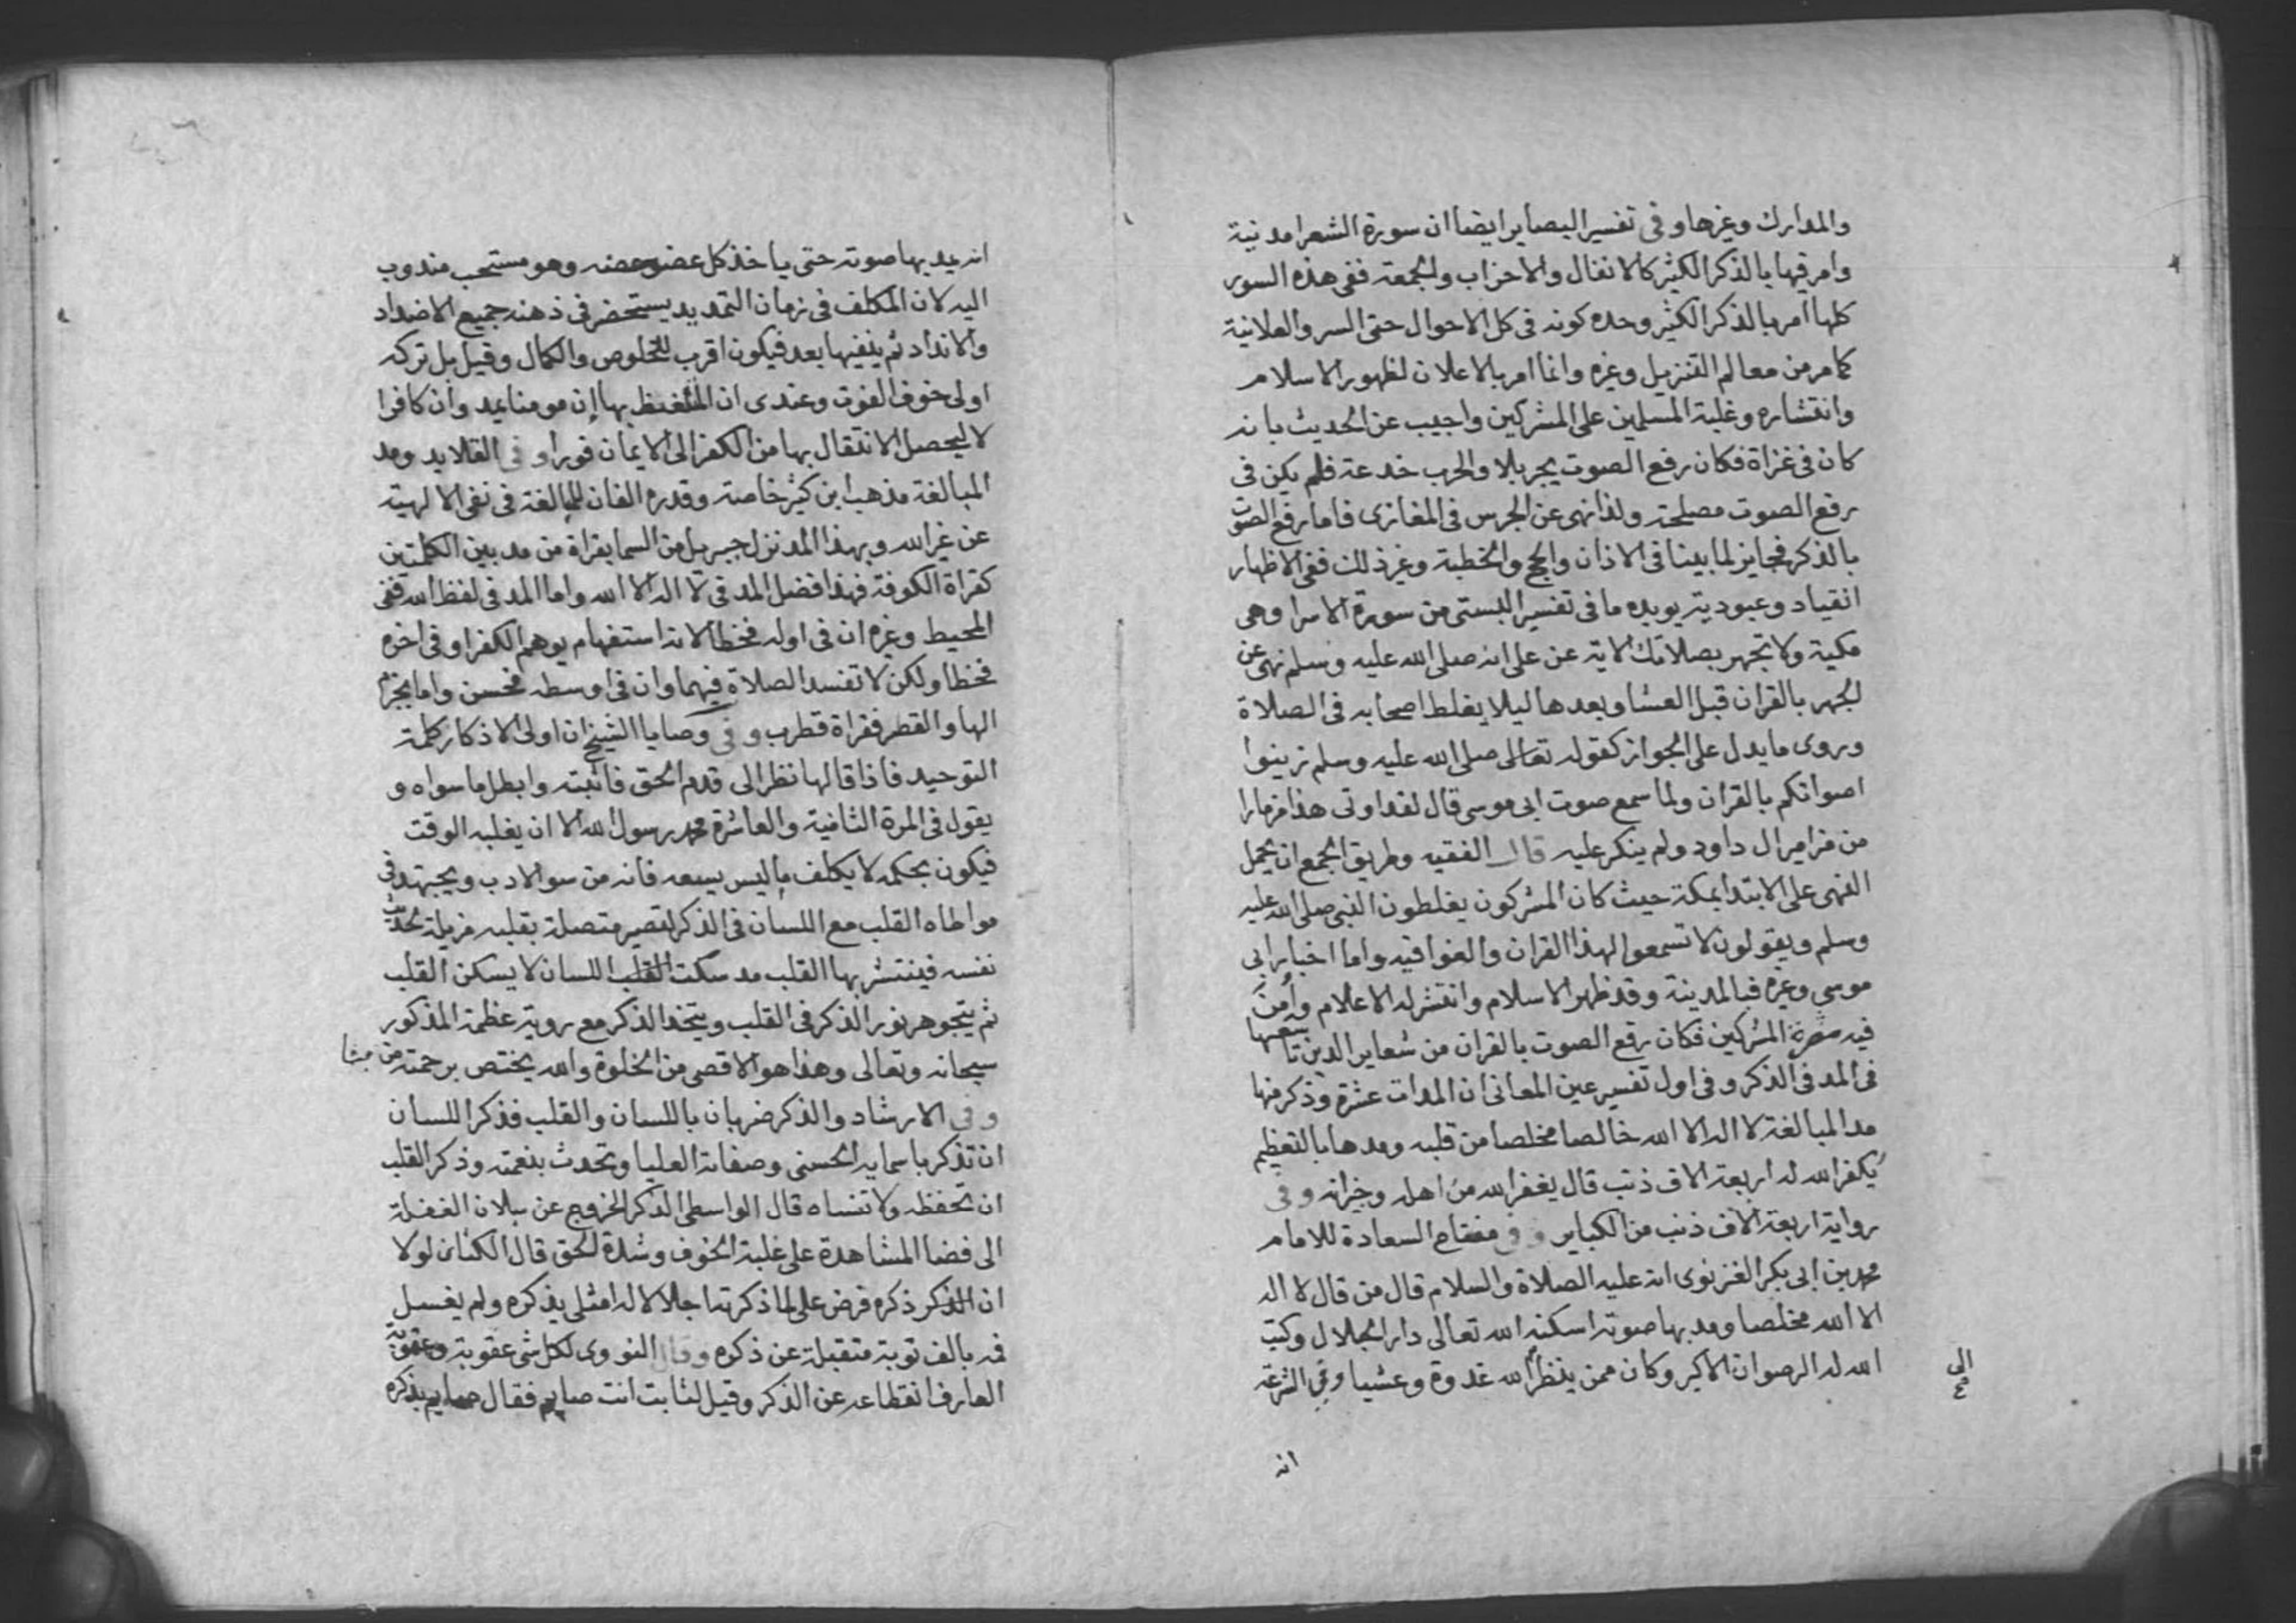 والمدارك وغيرها وفى تفسير البصاير ايضا ان سورة الشعرا مدنية
وامر فيها بالذكر الكثير كالانفال والاحزاب والجمعة ففى هذه السور
كلها امر بالذكر الكثير وحده كونه فى كل الاحوال حتى السر والعلانية
كما مر من معالم التنزيل وغيره وانما امر بالاعلان لظهور الاسلام
وانتشاره وغلبة المسلمين على المشركين واجيب عن الحديث بانه
كان فى غزاة فكان رفع الصوت يجر بلا والحرب خدعة فلم يكن فى
رفع الصوت مصلحة ولذا نهى عن الجرس فى المغازى فاما رفع الصوت
بالذكر فجايز لما بينا فى الاذان والحج والخطبة وغير ذلك ففى الاظهار
انقياد وعبودية يويده ما فى تفسير البستى من سورة الاسرا وهى
مكية ولا تجهر بصلاتك الاية عن على انه صلى الله عليه وسلم نهى عن
الجهر بالقران قبل العشا وبعدها ليلا يغلط اصحابه فى الصلاة
وروى ما يدل على الجواز كقوله تعالى صلى الله عليه وسلم زينوا
اصواتكم بالقران ولما سمع صوت ابى موسى قال لقد اوتى هذا مزمارا
من مزامير ال داود ولم ينكر عليه قال الفقيه وطريق الجمع ان يحمل
النهى على الابتدا بمكة حيث كان المشركون يغلطون النبى صلى الله عليه
وسلم ويقولون لا تسمعوا لهذا القران والغوا فيه واما اخبار ابى
موسى وغيره فبالمدينة وقد ظهر الاسلام وانتشر له الاعلام وأمن
فيه مضرة المشركين فكان رفع الصوت بالقران من شعاير الدين تاسعها
فى المد فى الذكر وفى اول تفسير عين المعانى ان المدات عشرة وذكر منها
مد المبالغة لا اله الا الله خالصا مخلصا من قلبه ومدها بالتعظيم
يكفر الله له اربعة الاف ذنب قال يغفر الله من اهله وجيرانه وفى
رواية اربعة الاف ذنب من الكباير وفى مفتاح السعادة للامام
محمد بن ابى بكر الغزنوى انه عليه الصلاة والسلام قال من قال لا اله
الا الله مخلصا ومد بها صوته اسكنه الله تعالى دار الجلال وكتب
الله له الرضوان الاكبر وكان ممن ينظر الله غدوة وعشيا وفى الشرعة
الى
انه
انه يمد بها صوته حتى ياخذ كل عضو عضه وهو مستحب مندوب
اليه لان المكلف فى زمان التمديد يستحضر فى ذهنه جميع الاضداد
والانداد ثم ينفيها بعد فيكون اقرب للخلوص والكمال وقيل بل تركه
اولى خوف الفوت وعندى ان المتلفظ بها إن مومنا يمد وان كافرا
لا ليحصل الانتقال بها من الكفر الى الايمان فورا وفى القلايد ومد
المبالغة مذهب ابن كثير خاصة وقدره الفان للمبالغة فى نفى الالهية
عن غير الله وبهذا المد نزل جبريل من السما بقراة من مد بين الكلمتين
كقراة الكوفة فهذا افضل المد فى لا اله الا الله واما المد فى لفظ الله ففى
المحيط وغيره ان فى اوله فخطا لانه استفهام يوهم الكفر او فى اخره
فخطا ولكن لا تفسد الصلاة فيهما وان فى اوسطه فحسن واما بجزم
الها والقطر فقراة قطرب وفى وصايا الشيخ ان اولى الاذكار كلمة
التوحيد فاذا قالها نظر الى قدم الحق فاثبته وابطل ما سواه و
يقول فى المرة الثانية والعاشرة محمد رسول الله الا ان يغلبه الوقت
فيكون بحكمه لا يكلف ما ليس يسعه فانه من سو الادب ويجتهد فى
مواطاه القلب مع اللسان فى الذكر لتصير متصلة بقلبه مزيلة لحديث
نفسه فينتشر بها القلب مد سكت القلب اللسان لا يسكن القلب
ثم يتجوهر نور الذكر فى القلب ويتخذ الذكر مع روية عظمة المذكور
سبحانه وتعالى وهذا هو الاقصى من الخلوة والله يختص برحمته من يشا
وفى الارشاد والذكر ضربان باللسان والقلب فذكر اللسان
ان تذكر باسمايه الحسنى وصفاته العليا وتحدث بنعمته وذكر القلب
ان تحفظه ولا تنساه قال الواسطى الذكر الخروج عن ببلان الغفلة
الى فضا المشاهدة على غلبة الخوف وشدة الحق قال الكتانى لولا
ان الذكر ذكره فرض على لما ذكرته اجلالا له امثلى يذكره ولم يغسل
فمه بالف توبة متقبلة عن ذكره وقال النووى لكل شى عقوبة وعقوبة
العارف انقطاعه عن الذكر وقيل لثابت انت صايم فقال صايم بذكره